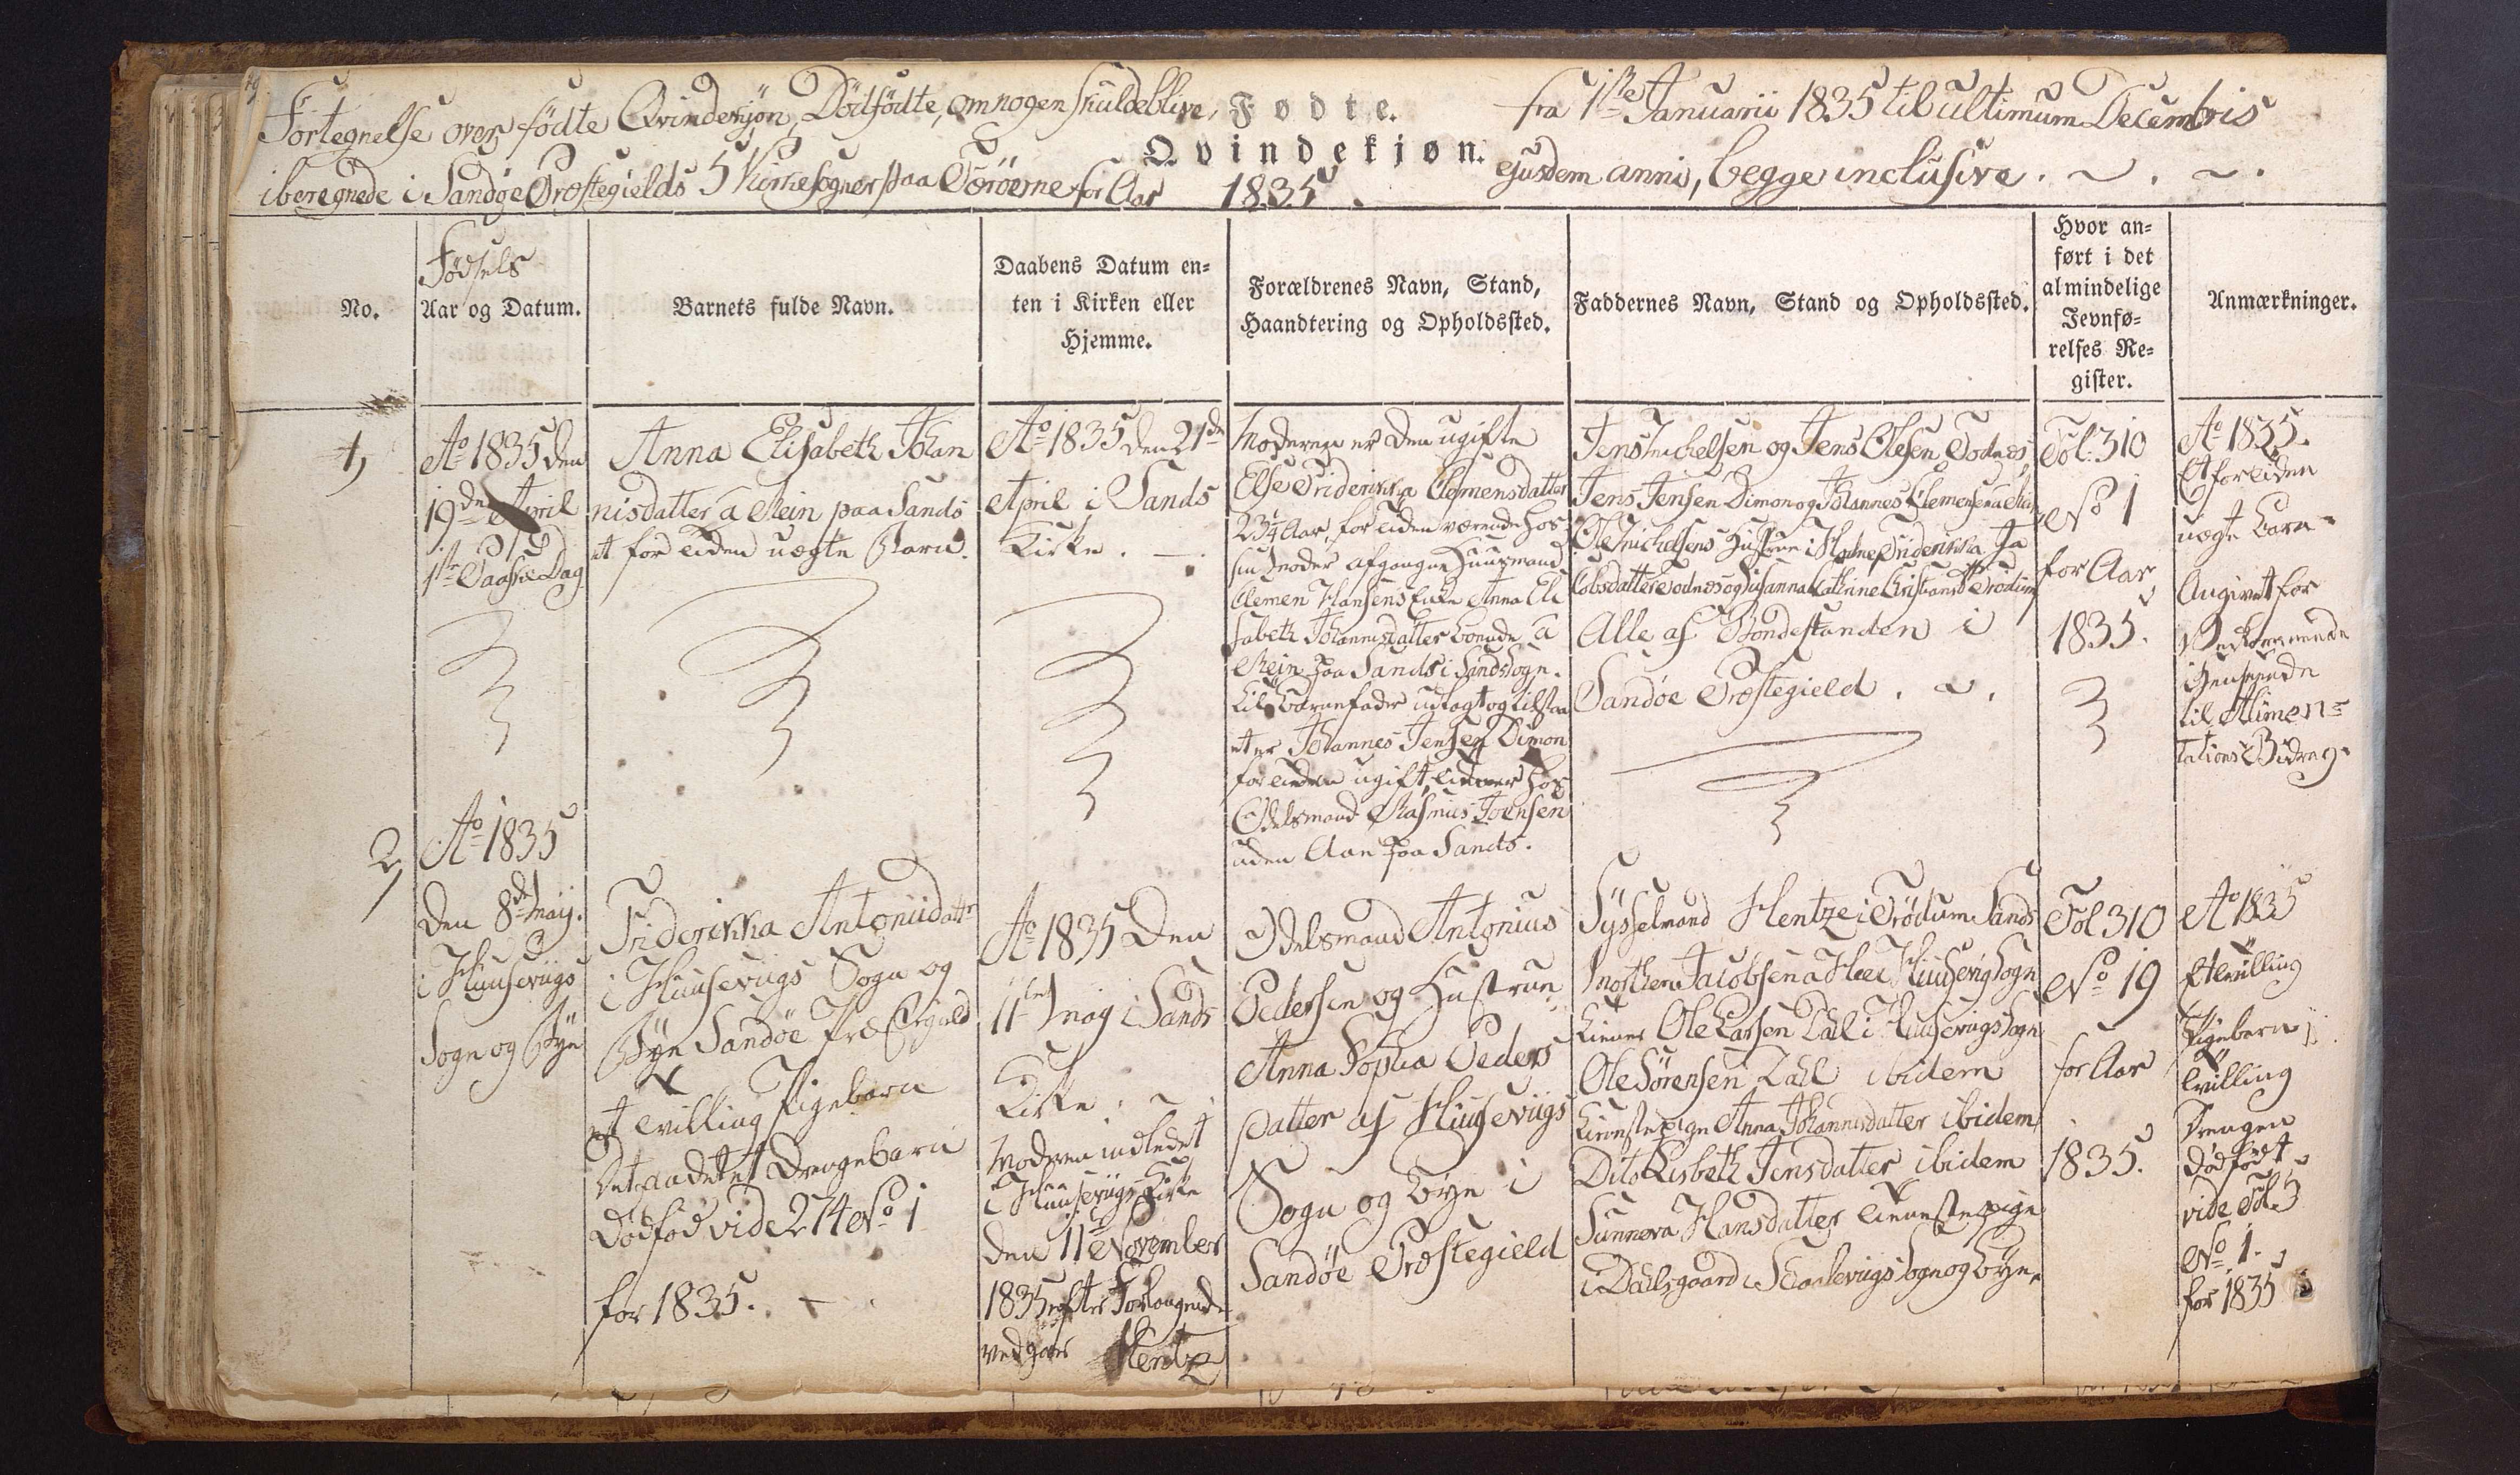 Fortegnelse over fødte Qvindekjøn, Dödfödte, om nogen skulde blive,
Fødte.
fra 1ste Januarii 1835 til ultimum Decembris
Qvindekjøn.
iberegnede i Sandøe Præstegields 5 Kirkesogner paa Færöerne for Aar 1835.
ejusdem anni, begge inclusive.
No.
Fødsels
Aar og Datum.
Barnets fulde Navn.
Daabens Datum en-
ten i Kirken eller
Hjemme.
Forældrenes Navn, Stand,
Haandtering og Opholdssted.
Faddernes Navn, Stand og Opholdssted.
Hvor an-
ført i det
almindelige
Jevnfø-
relses Re-
gister.
Anmærkninger.
1,
Ao 1835 den
19de April
1ste Paaske Dag
Anna Elisabeth Johan
nisdatter a Rein paa Sands
et for tiden uægte Barn.
Ao 1835 den 21de
April i Sands
Kirke.
Moderen er den ugifte
Else Friderikka Clemensdatter
23 1/4 Aar, for tiden værende hos
sin Moder afgangne Huusmand
Clemen Hansens Enke Anna Eli
sabeth Johannisdatter boende a
Rein paa Sands i Sands Sogn.
til Barnefader udlagt og tilstaa
et er Johannes Jensen Dimon
for tiden ugift, tiener hos
Odelsmand Rasmus Joensen
uden Aan paa Sands.
Jens Michelsen og Jens Olesen Todnes
Jens Jensen Dimon og Johannes Clemensen a Rein
Ole Michelsens Hustrue i Friderikka Ja
cobsdatter Todnes og Susanna Cathrine Christiansd Trödum
Alle af Bondestanden i
Sandöe Præstegield.
Fol: 310
No 1
for Aar
1835.
Ao 1835.
Et for tiden
uægte Barn
Angivet for
Vedkommende
Henseende
til Alimen-
tations Bidrag.
2,
Ao 1835
den 8de Maij.
i Huuseviigs
Sogn og Bye
Friderikka Antoniidattr
i Huusevigs Sogn og
Bye Sandöe Præstegield
et tvilling Pigebarn
Det andet et Drengebarn
Dödfød vide 274 No 1
for 1835.
Ao 1835 Den
11te Maij i Sands
Kirke.
Moderen indledet
i Huusevigs Kirke
den 11te November
1835 efter Forlangende
vedgaar Hentze
Odelsmand Antonius
Pedersen og Hustrue
Anna Sophia Peders
datter af Huusevigs
Sogn og Bye i
Sandöe Præstegield
Sysselmand Hentze i Trödum Sands
Morthen Jacobsen a Heel Huusevig Sogn
tiener Ole Larsen Dahl i Huusevigs Sogn
Ole Sörensen Dahl ibidem
tienestepige Anna Johannisdatter ibidem
Dito Lisbeth Jensdatter ibidem
Sunneva Hansdatter tienestepige
i Dahlsgaard i Skaalevigs Sogn og Bye.
Fol 310
No 19
for Aar
1835.
Ao 1835
Et tvilling
Pigebarn
tvilling
Drengen
dödfödt
vide Fol.
No 1.
for 1835